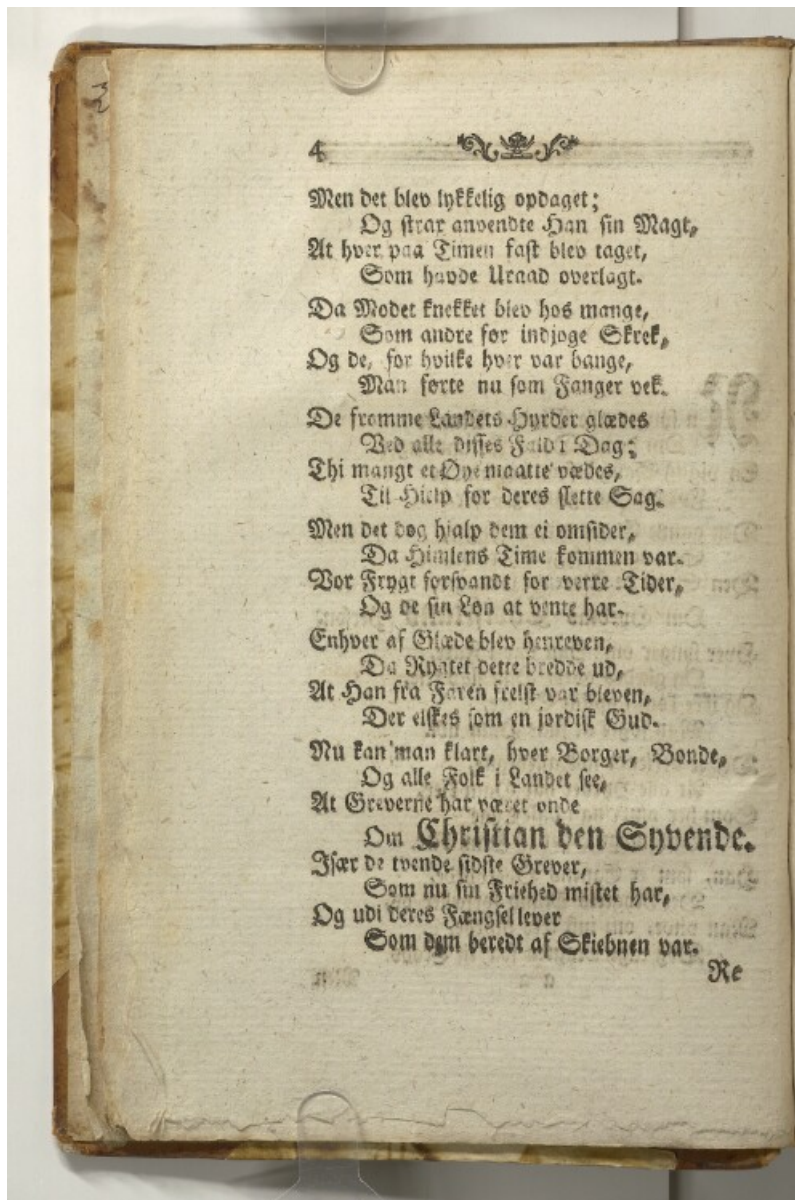 4
Men det blev lykkelig opdaget;
Og strax anvendte Han sin Magt,
At hver paa Timen fast blev taget,
Som havde Uraad overlagt.
Da Modet knekket blev hos mange,
Som andre før indjoge Skrek,
Og de, for hvilke hver var bange,
Man førte nu som Fanger vek.
De fromme Landets Hyrder glædes
Ved alle disses Fald i Dag;
Thi mangt et Øye maatte vædes,
Til Hielp for deres slette Sag.
Men det dog hialp dem ei omsider,
Da Himlens Time kommen var.
Vor Frygt forsvandt for verre Tider,
Og de sin Løn at vente har.
Enhver af Glæde blev henreven,
Da Rygtet dette bredde ud,
At Han fra Faren frelst var bleven,
Der elskes som en jordisk Gud.
Nu kan man klart, hver Borger, Bonde,
Og alle Folk i Landet see,
At Greverne har været onde
Om Christian den Syvende.
Især de tvende sidste Grever,
Som nu sin Friehed mistet har,
Og udi deres Fængsel lever
Som dem beredt af Skiebnen var.
Re